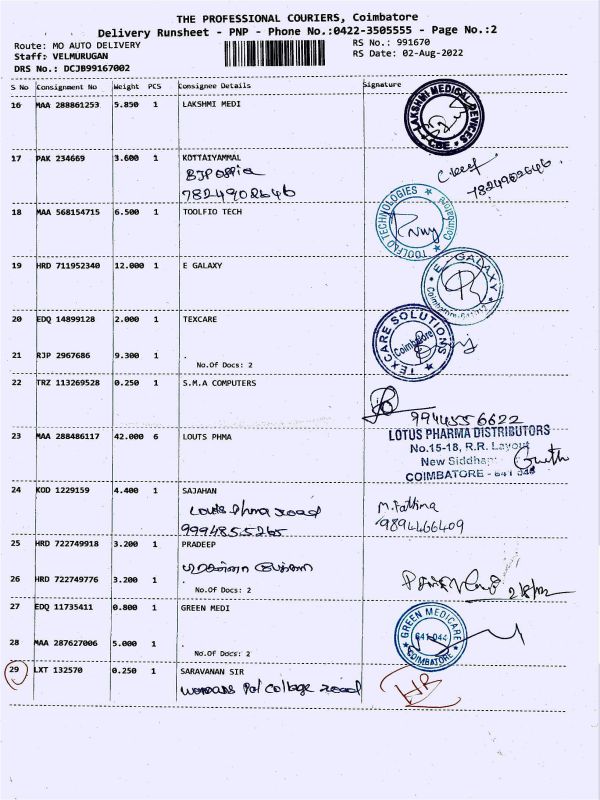 THE PROFESSIONAL COURIERS, Coimbatore
Delivery Runsheet - PNP - Phone No.:0422-3505555 - Page No.:2
Route: MO AUTO DELIVERY RS No.: 991670
Staff: VELMURUGAN RS Date: 02-Aug-2022
DRS No.: DCJB99167002
S No Consignment No Weight PCS Consignee Details Signature
16 MAA 288861253 5.850 1 LAKSHMI MEDI
LAKSHMI MEDICAL DEVICES
CBE
17 PAK 234669 3.600 1 KOTTAIYAMMAL
BJP
7824902646
7824902646
18 MAA 568154715 6.500 1 TOOLFIO TECH
TOOLFLO TECHNOLOGIES
Coimbatore
19 HRD 711952340 12.000 1 E GALAXY
E - GALAXY
Coimbatore
20 EDQ 14899128 2.000 1 TEXCARE
TEXCARE SOLUTIONS
Coimbatore
21 RJP 2967686 9.300 1 .
No.Of Docs: 2
22 TRZ 113269528 0.250 1 S.M.A COMPUTERS
9944556622
23 MAA 288486117 42.000 6 LOUTS PHMA
LOTUS PHARMA DISTRIBUTORS
No.15-18, R.R. Layout
New
COIMBATORE - 641 038
24 KOD 1229159 4.400 1 SAJAHAN
Louts Phma road
9994855265
M.Fathima
9894466409
25 HRD 722749918 3.200 1 PRADEEP
26 HRD 722749776 3.200 1 .
No.Of Docs: 2
27 EDQ 11735411 0.800 1 GREEN MEDI
GREEN MEDICARE
641 044
COIMBATORE
28 MAA 287627006 5.000 1 .
No.Of Docs: 2
29 LXT 132570 0.250 1 SARAVANAN SIR
Pol College road